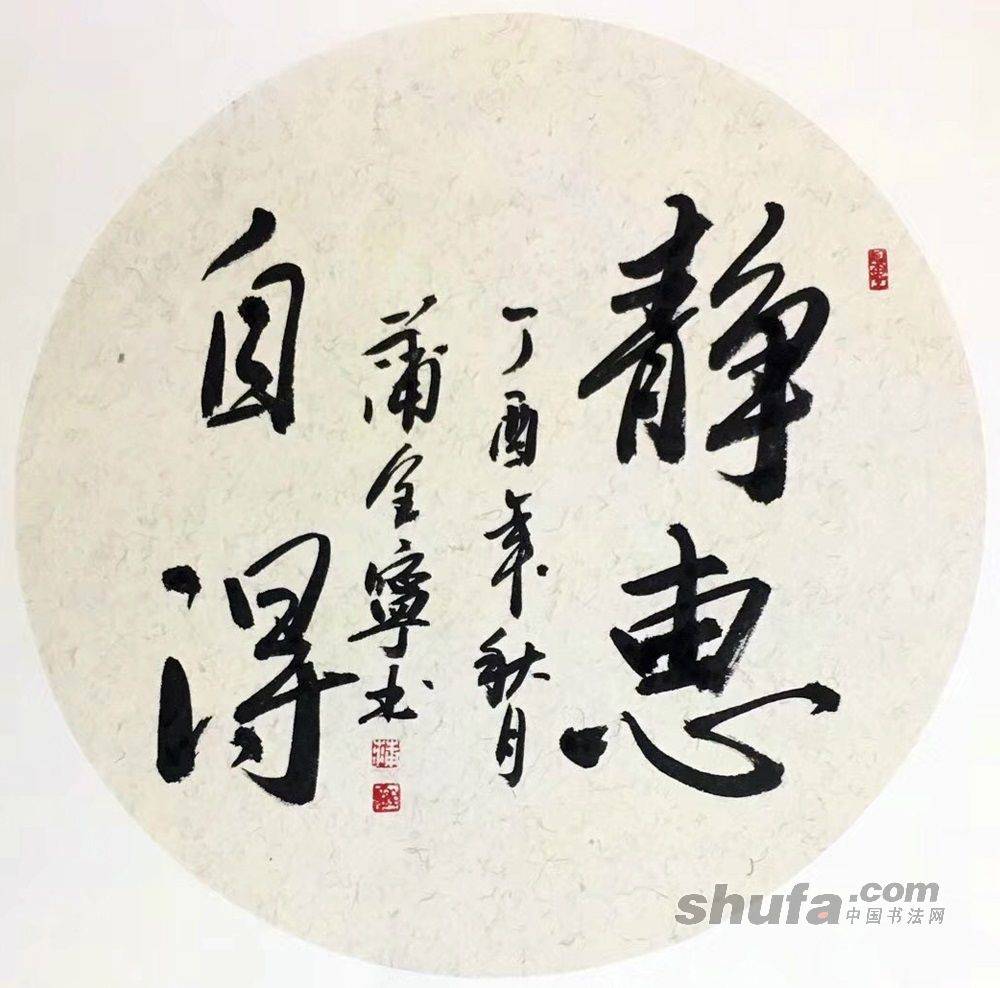 静惠
丁酉年秋月
蒲全宁书
自得
shufa.com
中国书法网